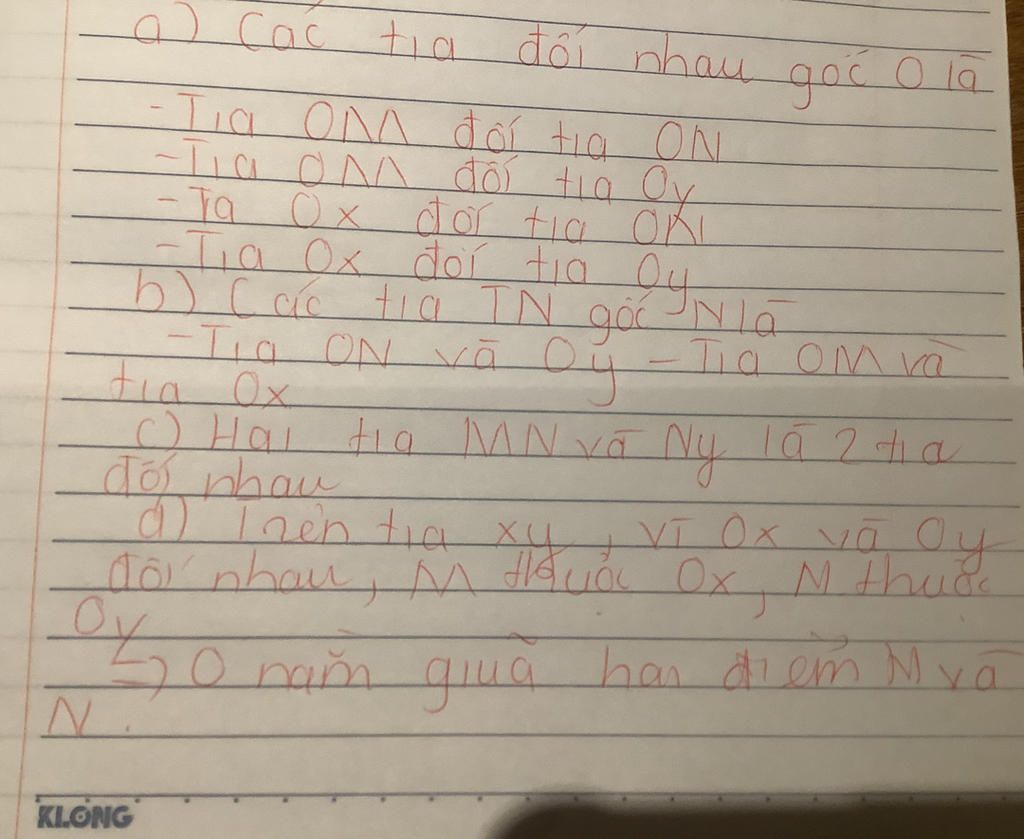 a) Các tia đối nhau gốc O là
- Tia OM đối tia ON
- Tia OM đối tia Oy
- Ta Ox đối tia ON
- Tia Ox đối tia Oy
b) Các tia TN gốc N là
- Tia ON và Oy - Tia OM và
tia Ox
c) Hai tia MN và Ny là 2 tia
đối nhau
d) Trên tia xy, vì Ox và Oy
đối nhau, M thuộc Ox, N thuộc
Oy
=> O nằm giữa hai điểm M và
N.
KLONG